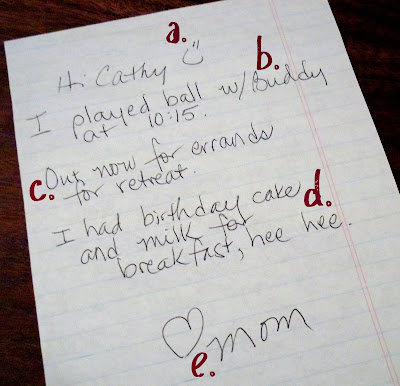 a.
Hi Cathy
b.
I played ball w/Buddy
at 10:15.
c. Out now for errands
for retreat.
I had birthday cake d.
and milk for
breakfast, hee hee.
e. mom